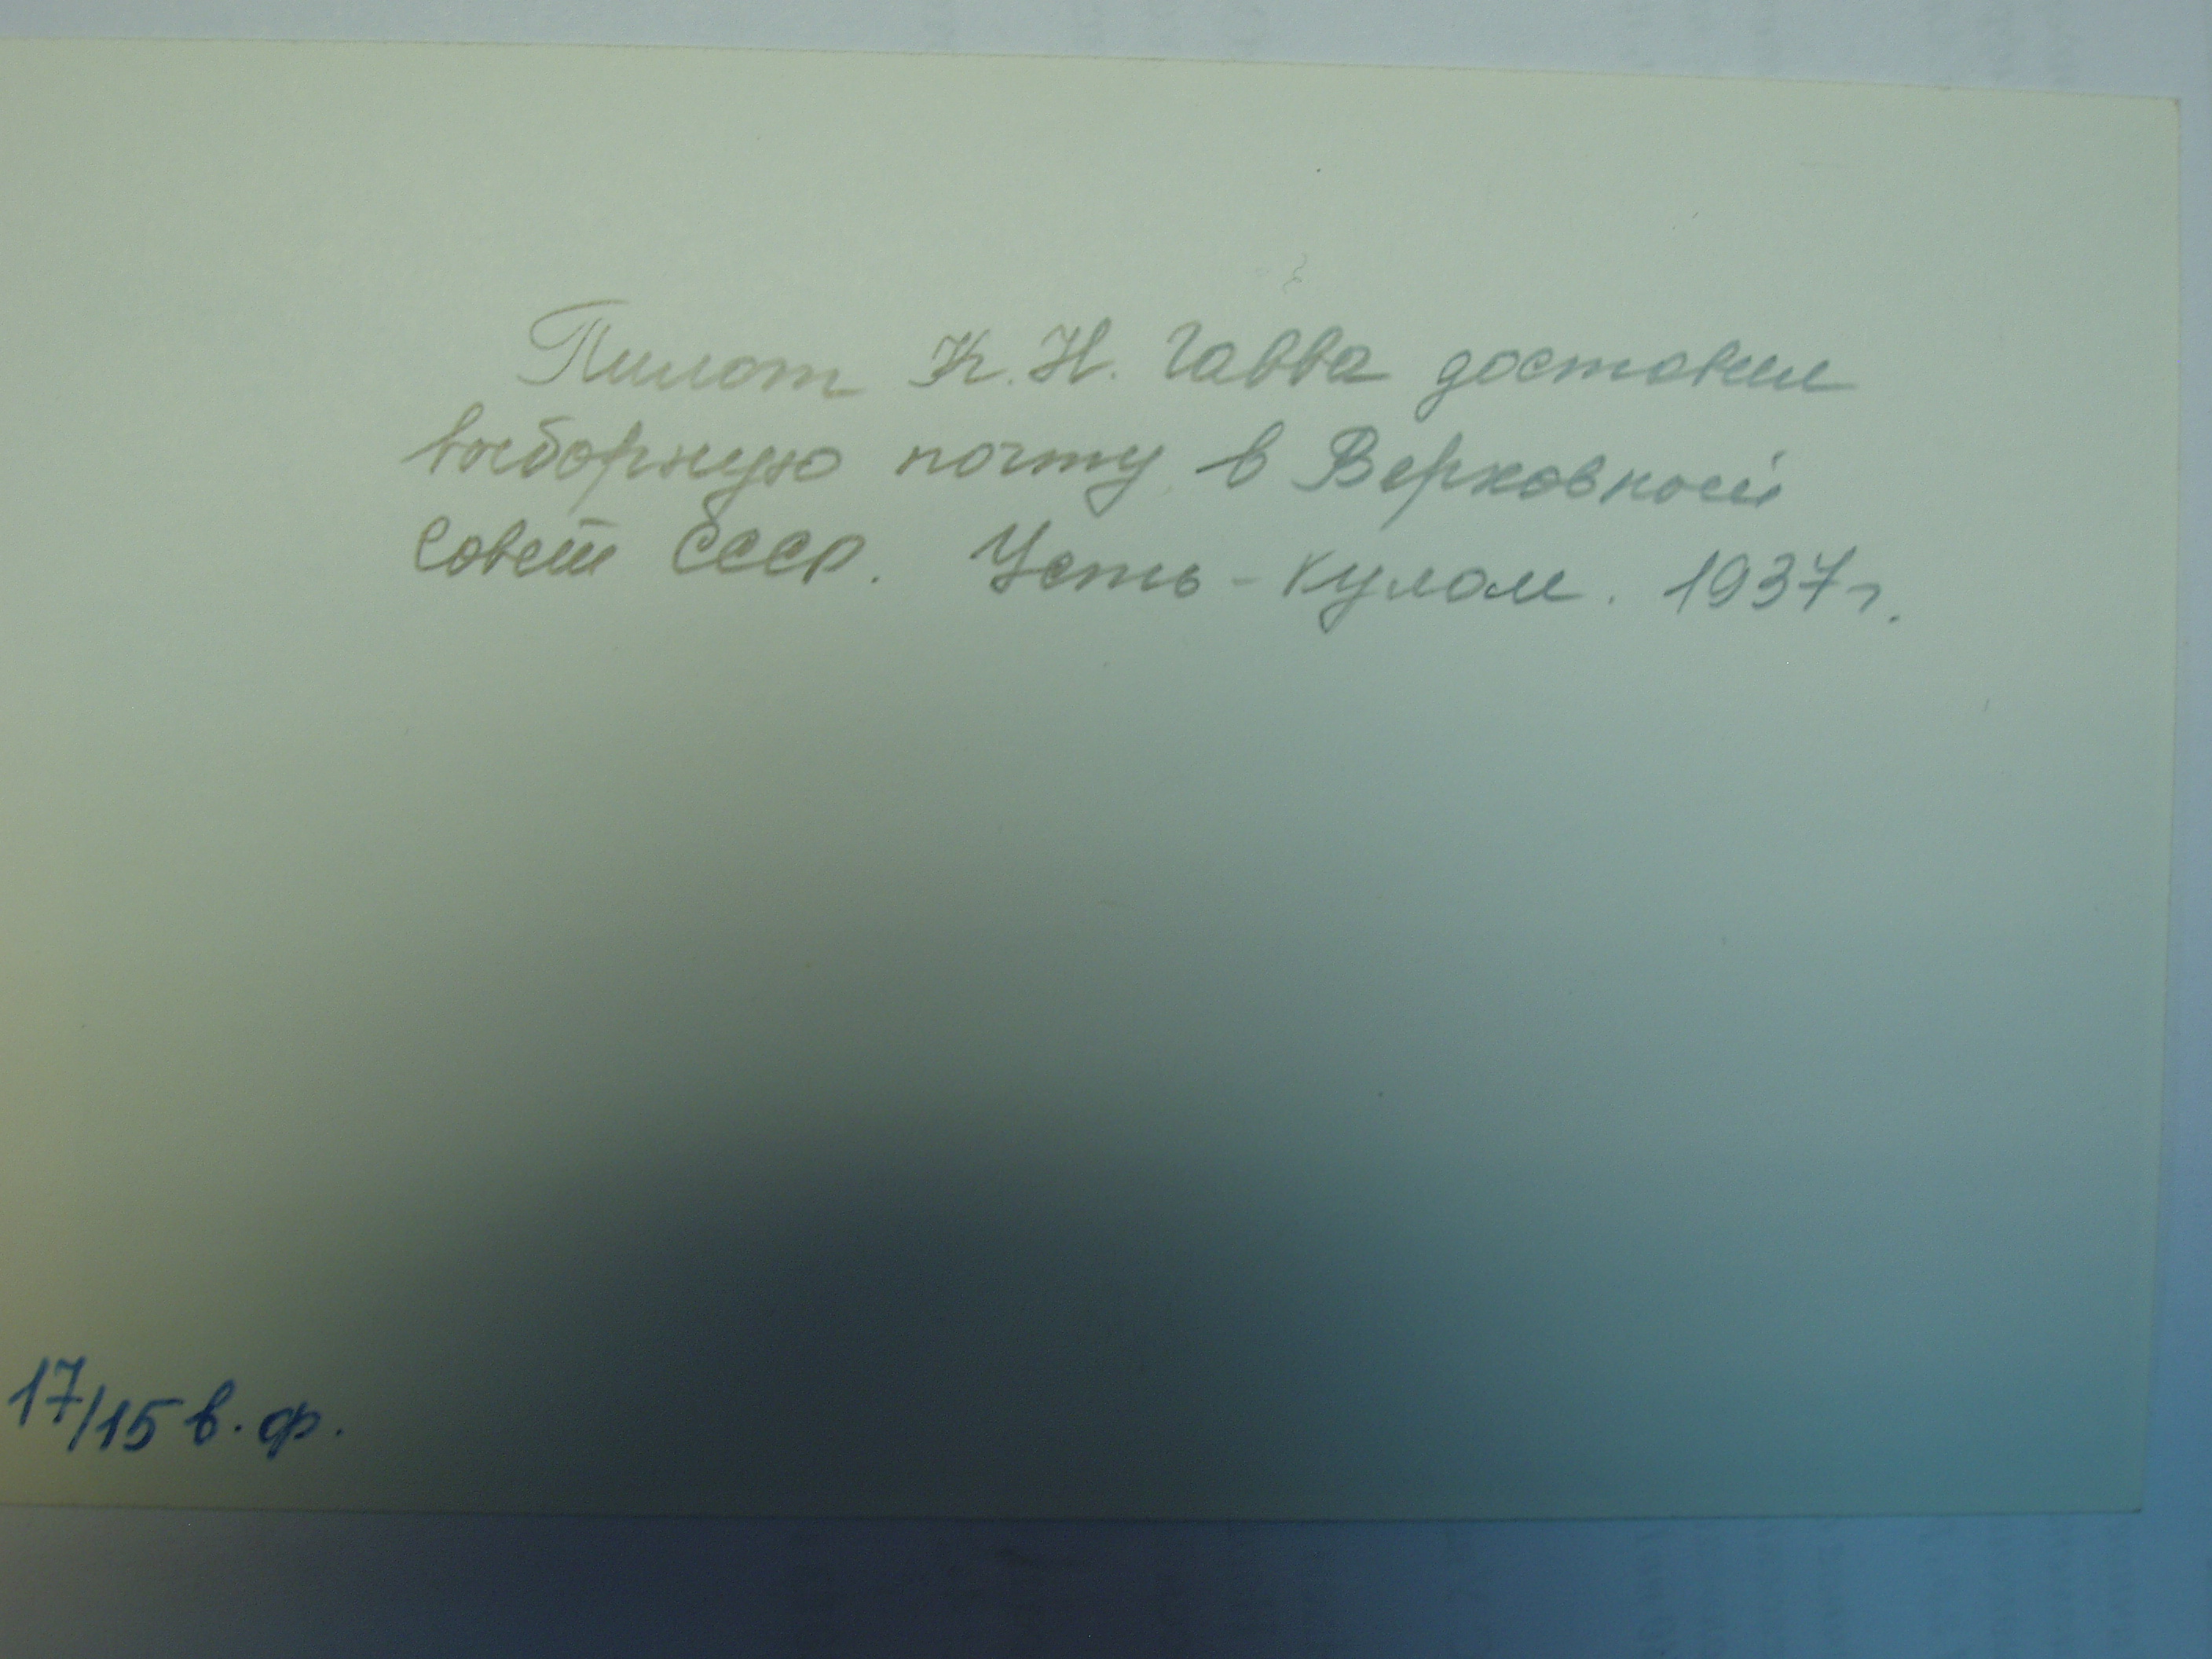 Пилот К.Н. Гавва доставил
выборную почту в Верховный
Совет СССР. Усть-Кулом. 1937г.
17/15 в.ф.